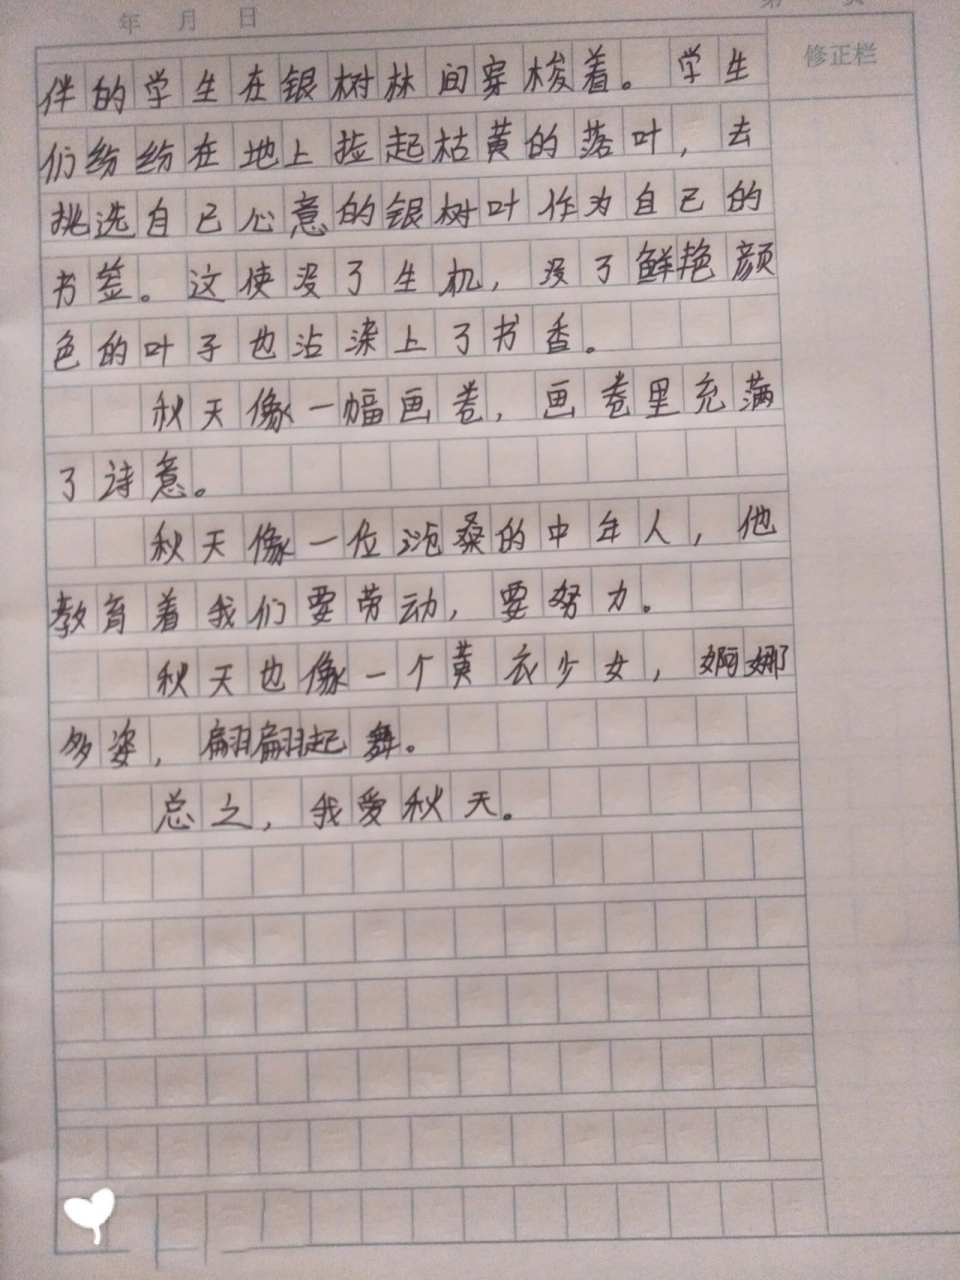 年 月 日
修正栏
伴的学生在银树林间穿梭着。学生
们纷纷在地上捡起枯黄的落叶，去
挑选自己心意的银树叶作为自己的
书签。这使没了生机，没了鲜艳颜
色的叶子也沾染上了书香。
秋天像一幅画卷，画卷里充满
了诗意。
秋天像一位沧桑的中年人，他
教育着我们要劳动，要努力。
秋天也像一个黄衣少女，婀娜
多姿，翩翩起舞。
总之，我爱秋天。